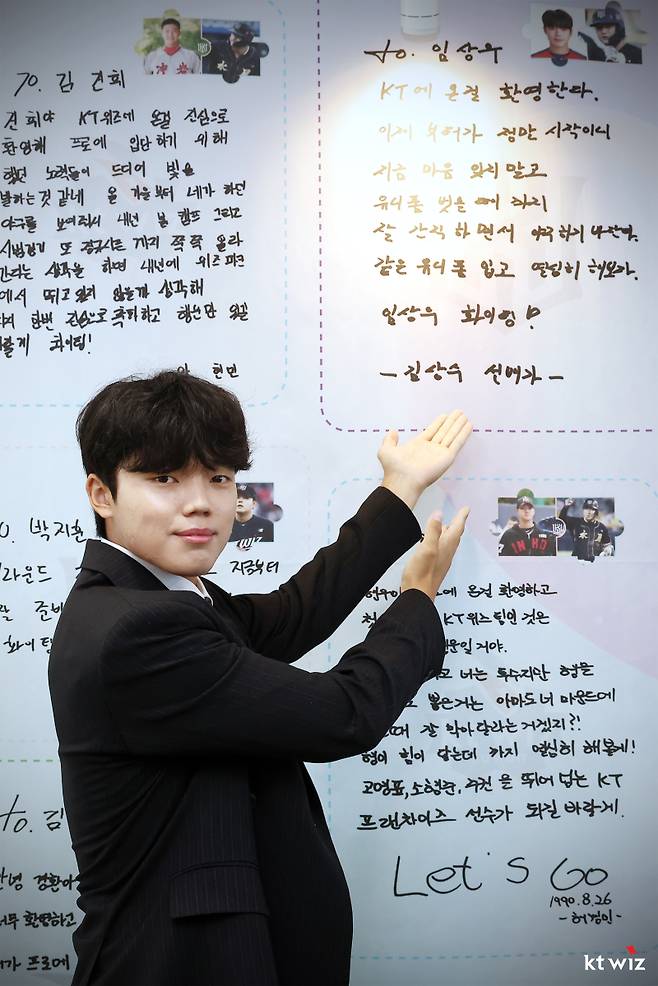 to. 김 건희
건희야 KT위즈에 온걸 진심으로
환영해 프로에 입단하기 위해
했던 노력들이 드디어 빛을
발하는것 같네 올 가을부터 네가 하던
야구를 보여줘서 내년 봄 캠프 그리고
시범경기 또 정규시즌 까지 쭉 쭉 올라
간다는 생각을 하면 내년에 위즈파크
에서 뛰고 있지 않을까 생각해
다시 한번 진심으로 축하하고
화이팅!
현민
to. 임상우
KT에 온걸 환영한다.
이제 부터가 정말 시작이니
지금 마음 잊지 말고
유니폼 벗을 때 까지
잘 간직 하면서 야구 하기 바란다.
같은 유니폼 입고 열심히 해보자.
임상우 화이팅!
-김상수 선배가-
박지훈
라운드
지금부터
준비
화이팅
온걸 환영하고
KT위즈 팀인 것은
거야.
너는 투수지만 형을
뽑은거는 아마도 너 마운드에
때 잘 막아달라는 거겠지?!
형이 힘이 닿는데 까지 열심히 해볼게!
고영표, 소형준, 주권 을 뛰어 넘는 KT
프랜차이즈 선수가 되길 바랄게.
Let's Go
1990.8.26
-허경민-
to. 김
안녕 경환아
너무 환영하고
프로에
kt wiz